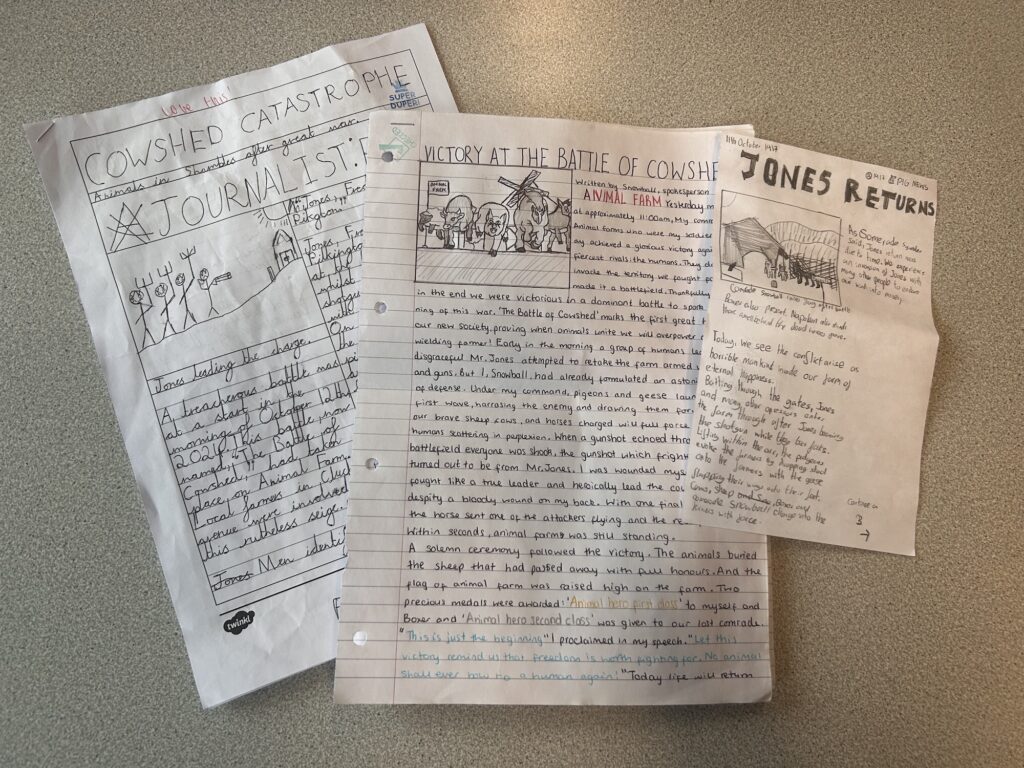 Love this
SUPER
DUPER!
COWSHED CATASTROPHE
Animals in Shambles after great war.
JOURNALIST:
Jones leading the charge.
A treacherous battle was
at a start in the
morning of October 12th
2024. This battle, now
named, "The Battle of
Cowshed, had taken
place on Animal Farm.
Local farmers in
avenue were involved
this ruthless seige.
Jones Men identi
twinkl
VICTORY AT THE BATTLE OF COWSHE
ANIMAL
FARM
Written by Snowball, spokesperson
ANIMAL FARM Yesterday m
at approximately 11:00am, My comra
Animal farms who were my soldier
any achieved a glorious victory agai
fiercest rivals: the humans. They d
invade the territory we fought
made it a battlefield. Thankfully
in the end we were victorious in a dominant battle to spark
ning of this war. 'The Battle of Cowshed' marks the first great
our new society, proving when animals unite we will overpower
wielding farmer! Early in the morning a group of humans le
disgraceful Mr. Jones attempted to retake the farm armed
and guns. But I, Snowball, had already formulated an astoni
of defense. Under my command, pigeons and geese laun
first wave, harrasing the enemy and drawing them for
our brave sheep, cows, and horses charged will full force
humans scattering in perplexion. When a gunshot echoed thr
battlefield everyone was shook, the gunshot which fright
turned out to be from Mr. Jones. I was wounded mys
fought like a true leader and heroically lead the
despite a bloody wound on my back. With one final
the horse sent one of the attackers flying and the re
Within seconds, animal farms was still standing.
A solemn ceremony followed the victory. The animals buried
the sheep that had passed away with full honours. And the
flag of animal farm was raised high on the farm. Two
precious medals were awarded: 'Animal hero first class' to myself and
Boxer and 'Animal hero second class' was given to our lost comrade.
"This is just the beginning" I proclaimed in my speech. "Let this
victory remind us that freedom is worth fighting for. No animal
shall ever bow to a human again!" Today life will return
11th October 1917
PIG NEWS
JONES RETURNS
As Comrade Snowball
said, Jones return was
due to time. We experience
an invasion of Jones with
many other people to
Comrade Snowball
Boxer also present, Napoleon also
Today, we see the conflict arise as
horrible mankind invade our farm of
eternal happiness.
Bolting through the gates, Jones
and many other oppressors enter
the farm through after Jones bearing
the shotgun while they bear forks.
Lifting within the air, the pidgeons
the farmers by dropping
onto the farmers with the geese
their ways into their feet.
Cows, Sheep and Boxer and
comrade Snowball charge into the
with force.
Continue on
3
→